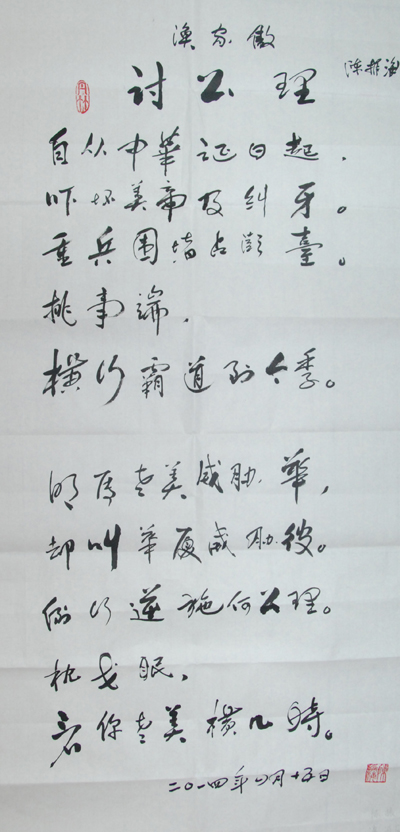 渔家傲
陈
討公理
自从中華日起，
吓坏美帝及纠牙。
重兵围堵占臺。
挑事端，
横行霸道到今季。
明属老美威胁華，
却叫華厦威胁彼。
倒行逆施何公理。
枕戈眠，
看你老美横几時。
二〇一四年四月十五日